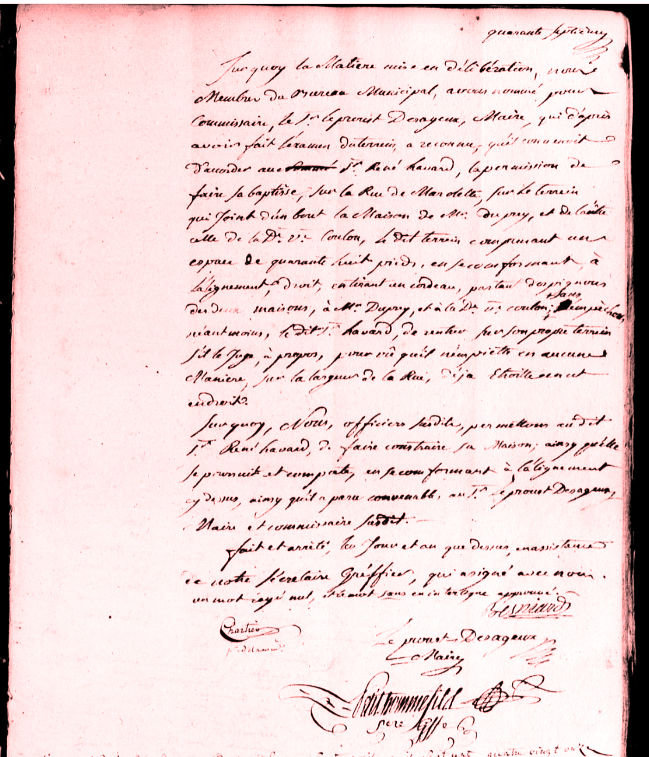 quarante Septieme
Surquoy la Matiere mise en déliberation, nous
Membres du Bureau Municipal, avons nommé pour
Commissaire, le Sr. leproust Desageux, Maire, qui d'après
avoir fait l'éxamen duterrein, a reconnu, qu'il convenoit
d'acorder au Sr. René havard, la permission de
faire sa baptisse, sur la Rue de Marolette, sur le terrein
qui Joint d'un bout la Maison de Mr. duprey, et de l'autre
celle de la De. Ve. Coulon, le dit terrein comprenant un
espace de quarante huit pieds, en se conformant, à
l'alignement, droit, en tirant un cordeau, partant des pignons
des deux maisons, à Mr. Duprey, et à la De. Ve. coulon; sans empecher
néantmoins, le dit Sr. havard, de rentrer sur son propre terrein
s'il le Juge, à propos, pour vû qu'il n'empiette en aucune
Maniere, sur la largeur de la Rue, déja Etroitte en cet
endroit.
Surquoy, Nous, officiers susdits, permettons au dit
Sr. René havard, de faire construire sa Maison; ainsy qu'elle
se poursuit et comporte, en se conformant à l'alignement
cy dessus, ainsy qu'il a paru convenable au Sr. leproust Desageux,
Maire et commissaire susdit.
fait et arrêté, les Jour et an que dessus, en assistance
de notre Sécretaire Gréffier, qui a signé avec nous.
un mot rayé nul, et le mot sans en interligne approuvé.
Chartier
Le proust Desageux
Maire
Saithommefils
Sere Greffe
quatre vingt onze